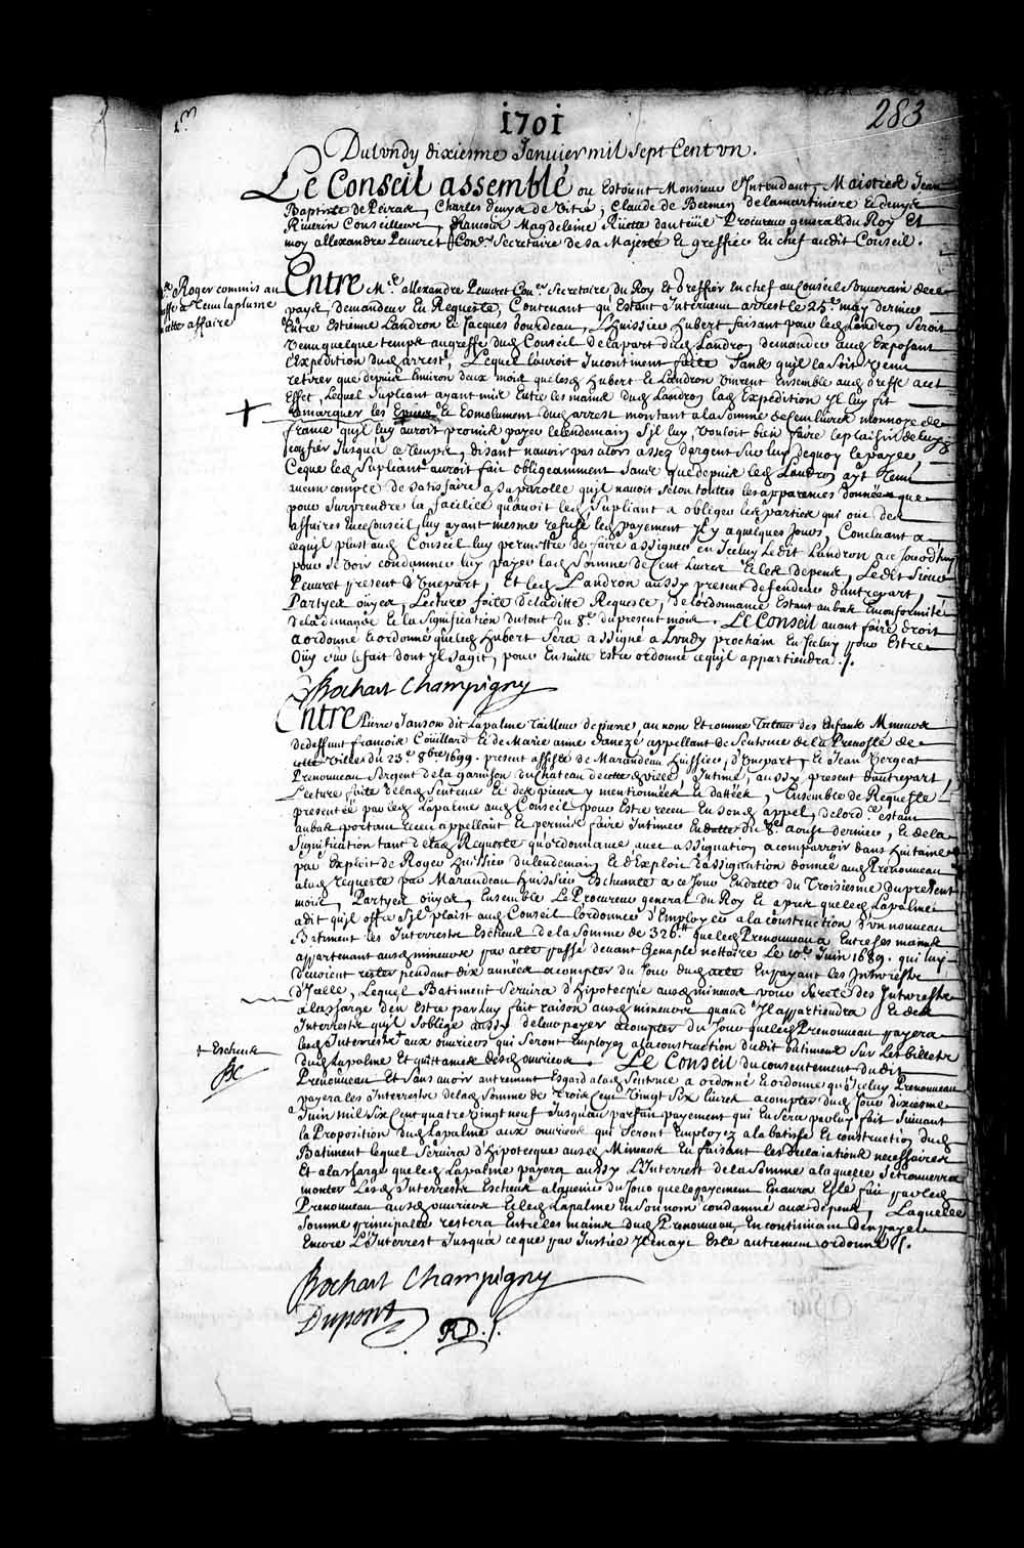 1701
283
Du Lundy dixiesme Janvier mil sept Cent un.
Le Conseil assemblé ou Estoient Monsieur l'Intendant, Maistres Jean
Baptiste de Peiras, Charles denys de Vitré, Claude de Bermen de lamartiniere et denys
Riverin Conseillers, françois Magdeleine Ruette dauteüil Procureur general du Roy Et
moy allexandre Peuvret Con.er Secretaire de sa Majesté et greffier En chef audit Conseil.
Roger commis au
greffe a tenu la plume
cette affaire
Entre M.e allexandre Peuvret Con.er Secretaire du Roy et Greffier En chef au Conseil Souverain de ce
pays, demandeur En Requeste, Contenant qu'Estant Intervenu arrest le 25.e may dernier
Entre Estienne Landron Et Jacques Gourdeau, L'Huissier Hubert faisant pour led. Landron Seroit
Venu quelque temps au greffe dud. Conseil de la part dud. Landron demander aud. Exposant
l'Expedition dud. arrest, Lequel l'auroit Incontinent faite Sans qu'il la soit venu
retirer que depuis Environ deux mois que lesd. Hubert Et Landron Vinrent Ensemble aud. greffe a cet
Effet, Lequel Supliant ayant mis Entre les mains dud. Landron lad. Expedition Il luy fit
remarquer les Et Esmolument dud. arrest montant a la Somme de Cent livres monnoye de
france qu'il luy auroit promis payer le lendemain S'il luy Vouloit bien faire le plaisir de luy
confier Jusqu'a ce temps, disant n'avoir pas alors assez d'argent Sur luy dequoy le payer,
Ceque led. Supliant auroit fait obligeamment Sans que depuis led. Landron ayt tenu
aucun compte de satisfaire a sa parolle qu'il n'avoit Selon touttes les apparences donnée que
pour surprendre la facilité qu'avoit led. Supliant a obliger les parties qui ont des
affaires En ce Conseil, luy ayant mesme refusé led. payement Il y a quelques Jours, Concluant a
cequ'il plust aud. Conseil luy permettre de faire assigner en Iceluy Ledit Landron a ce Jourd'huy
pour se Voir condamner luy payer lad. Somme de Cent Livres Et les depens, Ledit Sieur
Peuvret present d'Unepart, Et led. Landron aussy present defendeur d'autrepart,
Partyes ouyes, Lecture faite de la ditte Requeste, de l'ordonnance Estant au bas En conformité
de la demande Et la Signification du tout du 8.e du present mois. Le Conseil avant faire droit
a ordonné Et ordonne que led. Hubert Sera assigné a Lundy prochain En Iceluy pour Estre
Ouy sur le fait dont Il s'agit, pour Ensuitte estre ordonné cequ'il appartiendra ./.
Bochart Champigny
Entre Pierre Janson dit Lapalme Tailleur de pierre, au nom Et comme Tuteur des Enfans Mineurs
de deffunt françois Coüillard Et de Marie anne Janezé appellant de Sentence de la Prevosté de
cette Ville du 23.e 8bre 1699. present assisté de Marandeau Huissier, d'Unepart, Et Jean Bergeat
Prenouveau Sergent de la garnison du Chateau de cette d. Ville, Intimé, aussy present d'autrepart,
Lecture faite de lad. Sentence Et des pieces y mentionnées Et dattées, Ensemble de Requeste
presentée par led. Lapalme aud. Conseil pour Estre receu En son d. appel, de l'ord.ce estant
au bas portant receu appellant Et permis faire Intimer En datte du 8.e aoust dernier, Et de la
Signification tant desd. Requeste qu'ordonnance avec assignation a comparroir dans huitaine
par Exploit de Roger Huissier du lendemain Et d'Exploit d'assignation donnée aud. Prenouveau
a lad. requeste par Marandeau Huissier Escheante a ce Jour En datte du Troisiesme du present
mois, Partyes ouyes, Ensemble Le Procureur general du Roy Et apres que led. Lapalme
a dit qu'il offre S'il plaist aud. Conseil l'ordonner d'Employer a la construction d'un nouveau
Batiment les Interrests Escheus de la Somme de 326.lt que led. Prenouveau a Entre les mains
appartenant ausd. mineurs par acte passé devant Genaple nottaire Le 10.e Juin 1689. qui luy
devoient rester pendant dix années a compter du Jour dud. acte En payant les Interrests
d'Icelle, Lequel Batiment Servira d'Hipotecque ausd. mineurs pour Sureté des Interrests
a la charge d'en Estre par luy fait raison ausd. mineurs quand Il appartiendra Et des
Interrests qu'il s'oblige aussy de leur payer a compter du Jour que led. Prenouveau payera
lesd. Interrests + aux ouvriers qui seront Employez a la construction dudit batiment Sur Les billets
+ Escheus
BC
dud. Lapalme Et quittances desd. ouvriers. Le Conseil du consentement dudit
Prenouveau Et Sans avoir autrement Esgard a lad. Sentence a ordonné Et ordonne qu'Iceluy Prenouveau
payera les Interrests de lad. Somme de Trois Cent Vingt Six livres a compter dud. Jour dixiesme
Juin mil Six Cent quatre Vingt neuf Jusqu'au parfait payement qui En Sera par luy fait Suivant
la Proposition dud. Lapalme aux ouvriers qui Seront Employez a la batisse Et construction dud.
Batiment lequel Servira d'Hipotecque ausd. Mineurs En faisant les declarations necessaires
Et a la charge que led. Lapalme payera aussy L'Interrest de la Somme a laquelle Se trouverra
monter Lesd. Interrests Escheus a l'avenir du Jour que le payement En aura Esté fait par led.
Prenouveau ausd. ouvriers Et led. Lapalme En Son nom condamné aux depens, Laquelle
Somme principalle restera Entre les mains dud. Prenouveau, En continuant d'En payer
Encore L'Interrest Jusqu'a ce que par Justice Il En ayt Esté autrement ordonné ./.
Bochart Champigny
Dupont
RD./.